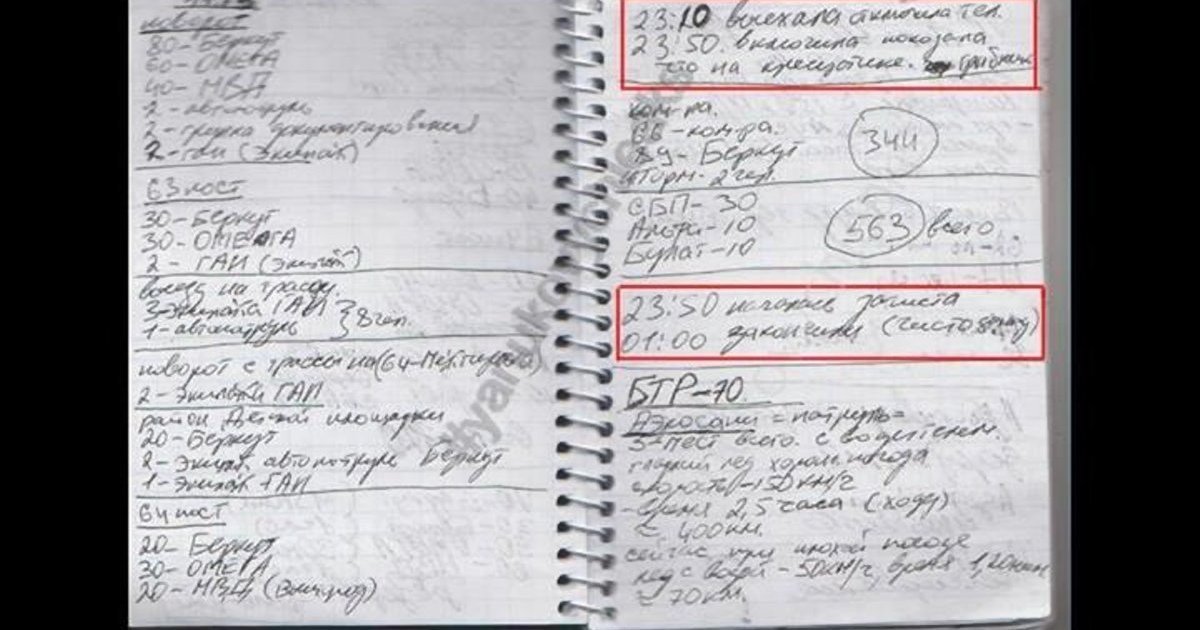 поворот
80-Беркут
60-ОМЕГА
40-МВД
2-автопатруль
2-группа документирования
2-ГАИ (Экипаж)
63 пост
30-Беркут
30-ОМЕГА
2-ГАИ (экипаж)
выезд на трассу.
3-экипажа ГАИ
1-автопатруль } 8 чел.
поворот с трассы на (64-
2-Экипажи ГАИ
район Детской площадки
20-Беркут
2-экипаж. автопатруль Беркут
1-Экипаж ГАИ
64 пост
20-Беркут
30-ОМЕГА
20-МВД
23:10 выехала отключила тел.
23:50. включила показала
что на крещатике.
ком-ра.
66-ком-ра.
89-Беркут
344
Шторм-2 чел.
СБП-30
Альфа-10
563 всего
Булат-10
23:50 началась зачистка
01:00 закончили (чисто
БТР-70.
Аэросани =патруль=
5-мест всего. с водителем.
гладкий лед хорош. погода
скорость-150 км/г
-время 2,5 часа (ходу)
≈ 400 км.
сейчас при плохой погоде
лед с водой-50 км/г, время 1,20
≈ 70 км.